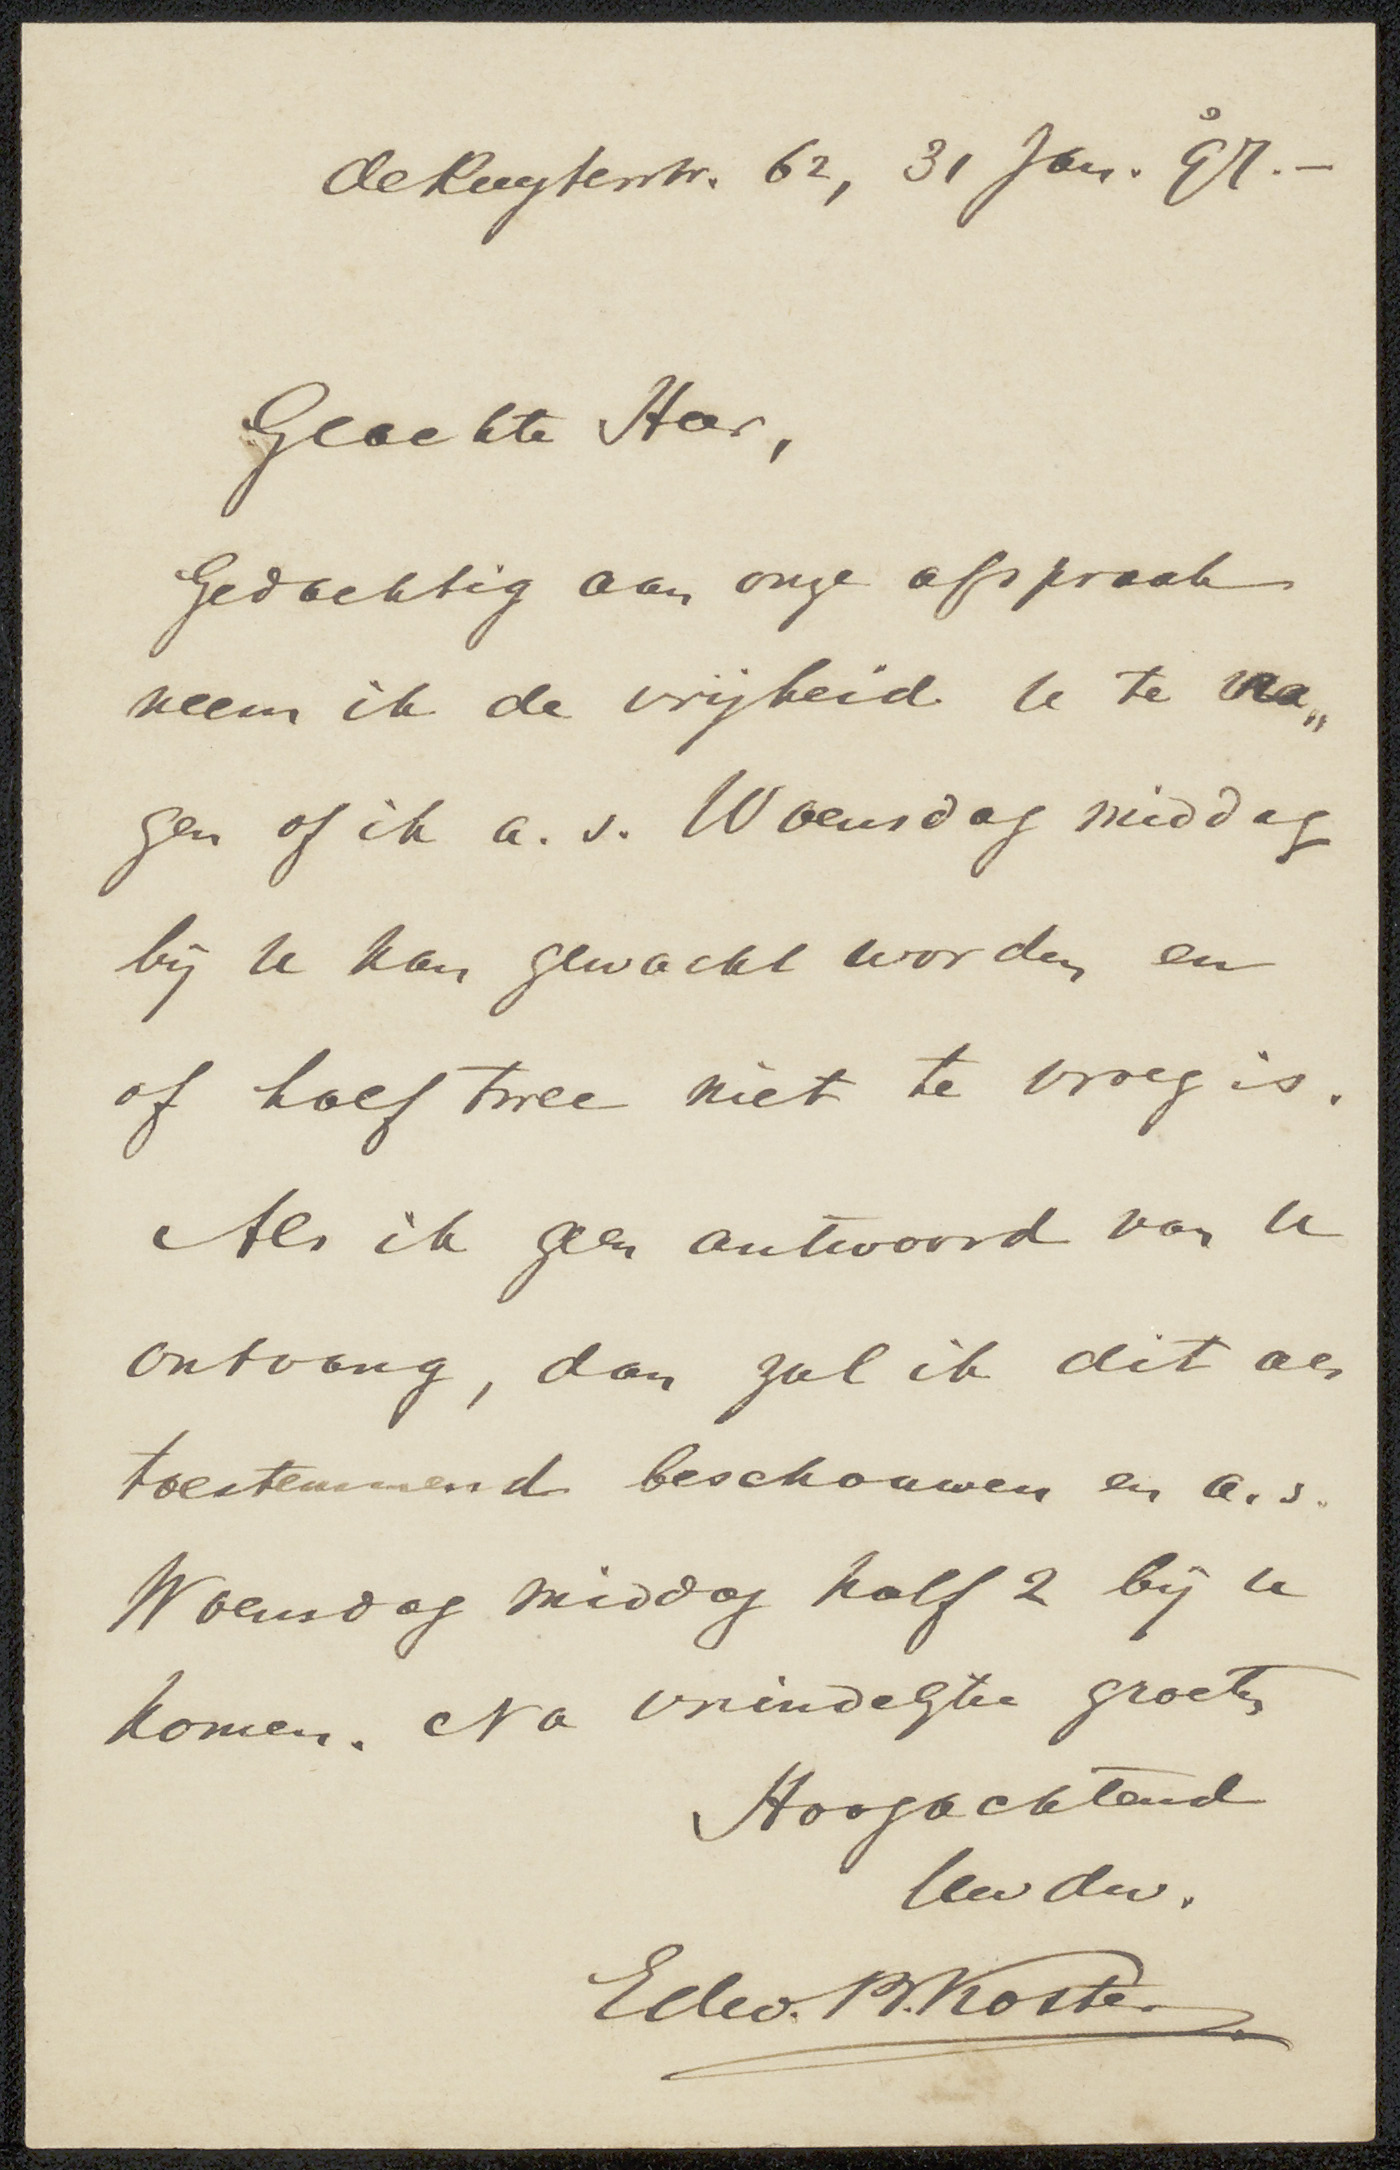 de Ruyterstr. 62, 31 Jan. 97.—
Geachte Heer,
Gedachtig aan onze afspraak
neem ik de vrijheid U te vra„
gen of ik a. s. Woensdag middag
bij U kan gewacht worden en
of half twee niet te vroeg is.
Als ik geen antwoord van U
ontvang, dan zal ik dit als
toestemmend beschouwen en a. s.
Woensdag middag half 2 bij U
komen. Na vriendelijke groeten
Hoogachtend
Uw dw.
Edw. B. Koster